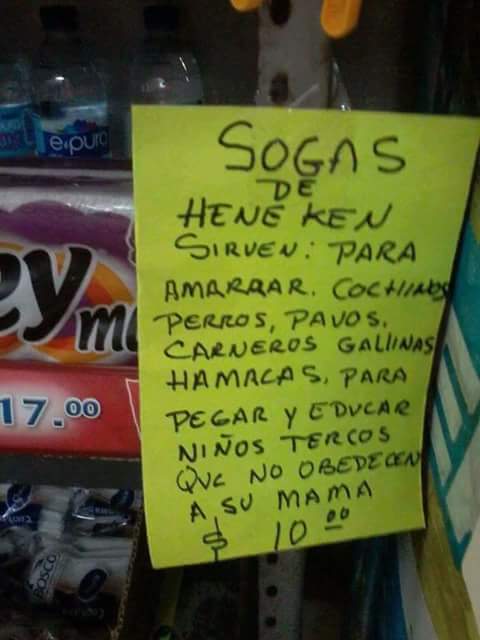 e·pura
ey
17.00
BOSCO
SOGAS
DE
HENEKEN
SIRVEN: PARA
AMARRAR. COCHINOS
PERROS, PAVOS.
CARNEROS GALLINAS
HAMACAS, PARA
PEGAR Y EDUCAR
NIÑOS TERCOS
QUE NO OBEDECEN
A SU MAMA
$ 10.00